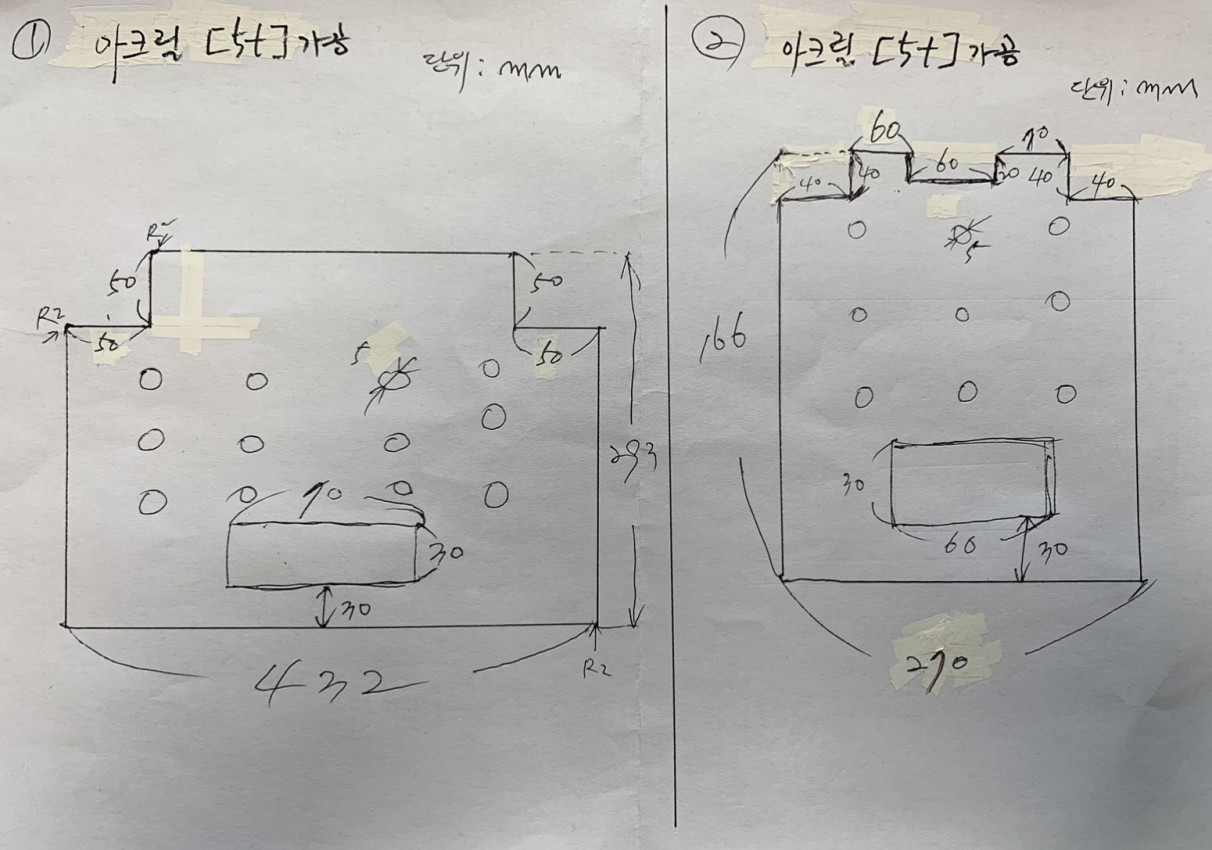 ① 아크릴 [5t] 가공
단위 : mm
R2
50
50
R2
50
50
5
293
70
30
30
432
R2
② 아크릴 [5t] 가공
단위 : mm
60
70
40
40
60
40
40
5
166
30
60
30
270